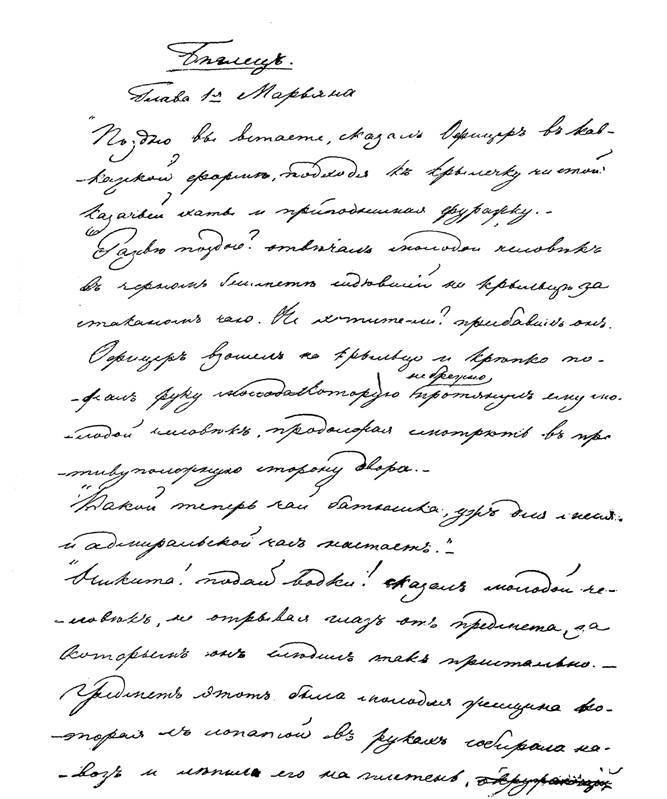 Бѣглецъ.
Глава 1я Марьяна
"Поздно вы встаете, сказалъ Офицеръ въ кав-
-казской формѣ, подходя къ крылечку чистой
казачьей хаты и приподнимая фуражку. -
Развѣ поздно? отвѣчалъ молодой человѣкъ
въ черномъ бешметѣ сидѣвшій на крыльцѣ за
стаканомъ чаю. Не хотите-ли? прибавилъ онъ.
Офицеръ взошелъ на крыльцо и крѣпко по-
-жалъ руку которую небрежно протянулъ ему мо-
-лодой человѣкъ, продолжая смотрѣть въ про
-тивуположную сторону двора. -
"Какой теперь чай батюшка, ужъ для меня
и адмиральской часъ настаетъ." -
"Никита! подай водки! сказалъ молодой че-
-ловѣкъ, не отрывая глазъ отъ предмета, за
которымъ онъ слѣдилъ такъ пристально. -
Предметъ этотъ была молодая женщина ко-
-торая съ лопатой въ рукахъ собирала на-
-возъ и лѣпила его на плетень,